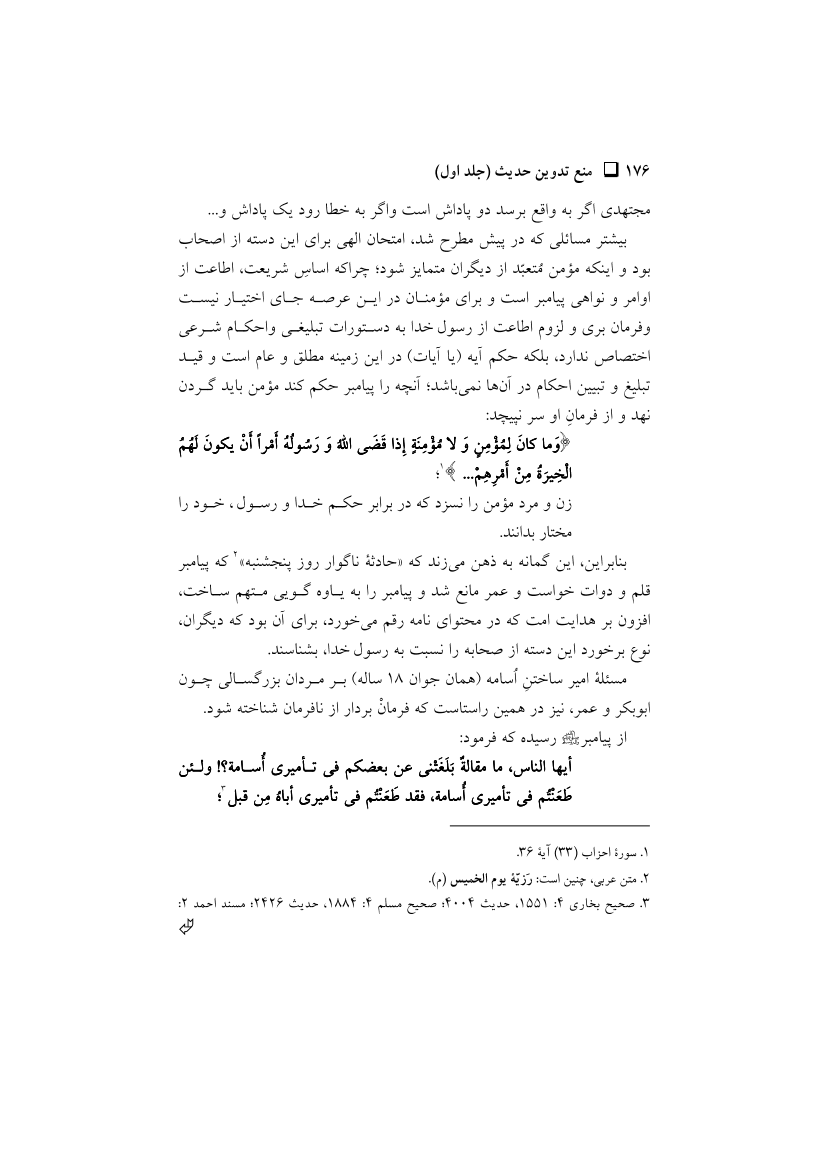 ۱۷۶ ❑ منع تدوین حدیث (جلد اول)
مجتهدی اگر به واقع برسد دو پاداش است واگر به خطا رود یک پاداش و...
بیشتر مسائلی که در پیش مطرح شد، امتحان الهی برای این دسته از اصحاب
بود و اینکه مؤمن مُتعبّد از دیگران متمایز شود؛ چراکه اساسِ شریعت، اطاعت از
اوامر و نواهی پیامبر است و برای مؤمنان در این عرصه جای اختیار نیست
وفرمان بری و لزوم اطاعت از رسول خدا به دستورات تبلیغی واحکام شرعی
اختصاص ندارد، بلکه حکم آیه (یا آیات) در این زمینه مطلق و عام است و قید
تبلیغ و تبیین احکام در آن‌ها نمی‌باشد؛ آنچه را پیامبر حکم کند مؤمن باید گردن
نهد و از فرمانِ او سر نپیچد:
﴿وَما كانَ لِمُؤْمِنٍ وَ لا مُؤْمِنَةٍ إِذا قَضَى اللهُ وَ رَسُولُهُ أَمْراً أَنْ يكونَ لَهُمُ
الْخِيرَةُ مِنْ أَمْرِهِمْ... ﴾۱؛
زن و مرد مؤمن را نسزد که در برابر حکم خدا و رسول، خود را
مختار بدانند.
بنابراین، این گمانه به ذهن می‌زند که «حادثهٔ ناگوار روز پنجشنبه»۲ که پیامبر
قلم و دوات خواست و عمر مانع شد و پیامبر را به یاوه گویی متهم ساخت،
افزون بر هدایت امت که در محتوای نامه رقم می‌خورد، برای آن بود که دیگران،
نوع برخورد این دسته از صحابه را نسبت به رسول خدا، بشناسند.
مسئلهٔ امیر ساختنِ اُسامه (همان جوان ۱۸ ساله) بر مردان بزرگسالی چون
ابوبکر و عمر، نیز در همین راستاست که فرمانْ بردار از نافرمان شناخته شود.
از پیامبرﷺ رسیده که فرمود:
أیها الناس، ما مقالةٌ بَلَغَتْنی عن بعضکم فی تأمیری أُسامة؟! ولئن
طَعَنْتُم فی تأمیری أُسامة، فقد طَعَنْتُم فی تأمیری أباهُ مِن قبل۳؛
۱. سورهٔ احزاب (۳۳) آیهٔ ۳۶.
۲. متن عربی، چنین است: رَزیّة یوم الخمیس (م).
۳. صحیح بخاری ۴: ۱۵۵۱، حدیث ۴۰۰۴؛ صحیح مسلم ۴: ۱۸۸۴، حدیث ۲۴۲۶؛ مسند احمد ۲: